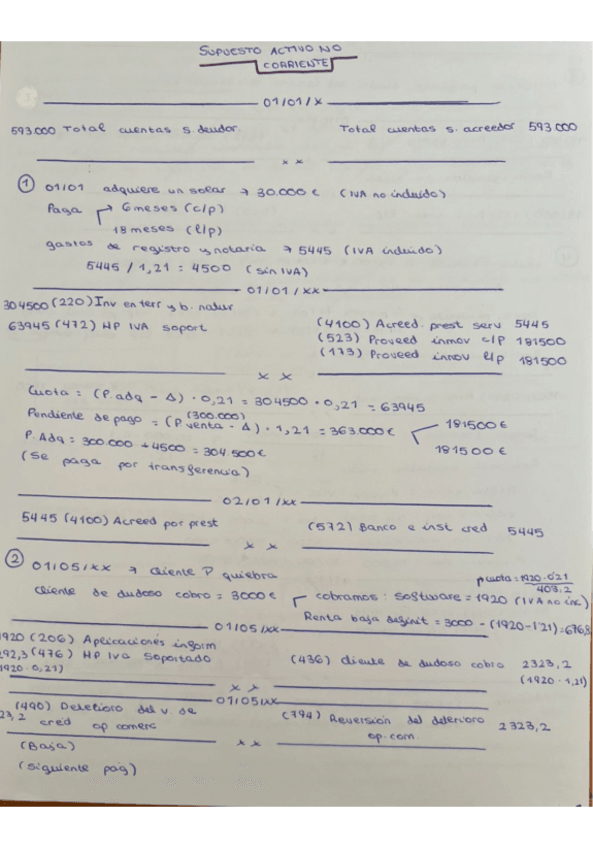 SUPUESTO ACTIVO NO
CORRIENTE
01/01/X
593000 Total cuentas s. deudor Total cuentas s. acreedor 593000
x x
① 01/01 adquiere un solar → 30.000 € (IVA no incluido)
Paga 6 meses (c/p)
18 meses (l/p)
gastos de registro y notaria → 5445 (IVA incluido)
5445 / 1,21 = 4500 (sin IVA)
01/01/xx
304500 (220) Inv en terr y b. natur
63945 (472) HP IVA soport (4100) Acreed. prest serv 5445
(523) Proveed inmov c/P 181500
(173) Proveed inmov l/p 181500
x x
Cuota = (P. adq - Δ) · 0,21 = 304500 · 0,21 = 63945
(300.000)
Pendiente de pago = (P venta - Δ) · 1,21 = 363.000 € 181500 €
P. Adq = 300.000 + 4500 = 304.500 € 181500 €
(Se paga por transferencia)
02/01/xx
5445 (4100) Acreed por prest (572) Banco e inst cred 5445
x x
② 01/05/xx → Cliente P quiebra
cuota = 1920 · 0'21
403,2
Cliente de dudoso cobro = 3000 € cobramos: software = 1920 (IVA no inc)
Renta baja definit = 3000 - (1920 - 1'21) = 676,8
01/05/xx
1920 (206) Aplicaciones inform
292,3 (476) HP Iva Soportado (436) cliente de dudoso cobro 2323,2
1920 · 0,21) (1920 · 1,21)
x x
01/05/xx
(490) Deterioro del v de (794) Reversión del deterioro 2323,2
23,2 cred op comerc op. com.
(Baja) x x
(Siguiente pag)